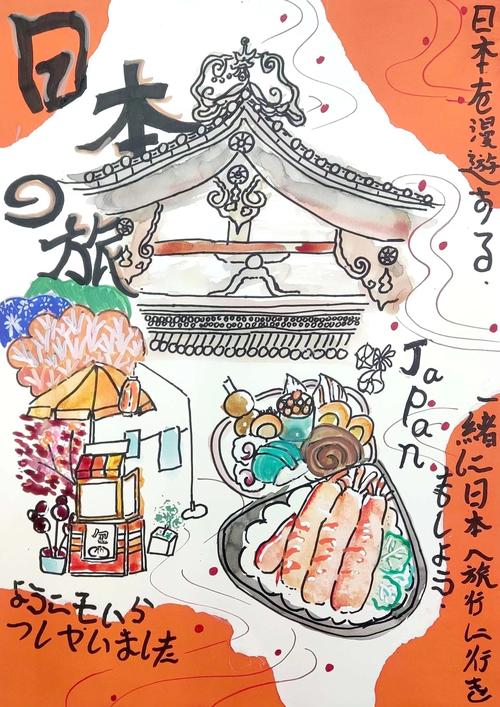 日本の旅
日本を漫遊する.
Japan
一緒に日本へ旅行に行き
もしよう.
ようこそいら
っしゃいました